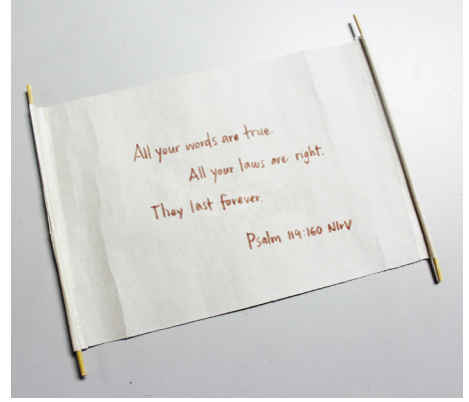 All your words are true.
All your laws are right.
They last forever.
Psalm 119:160 NIrV